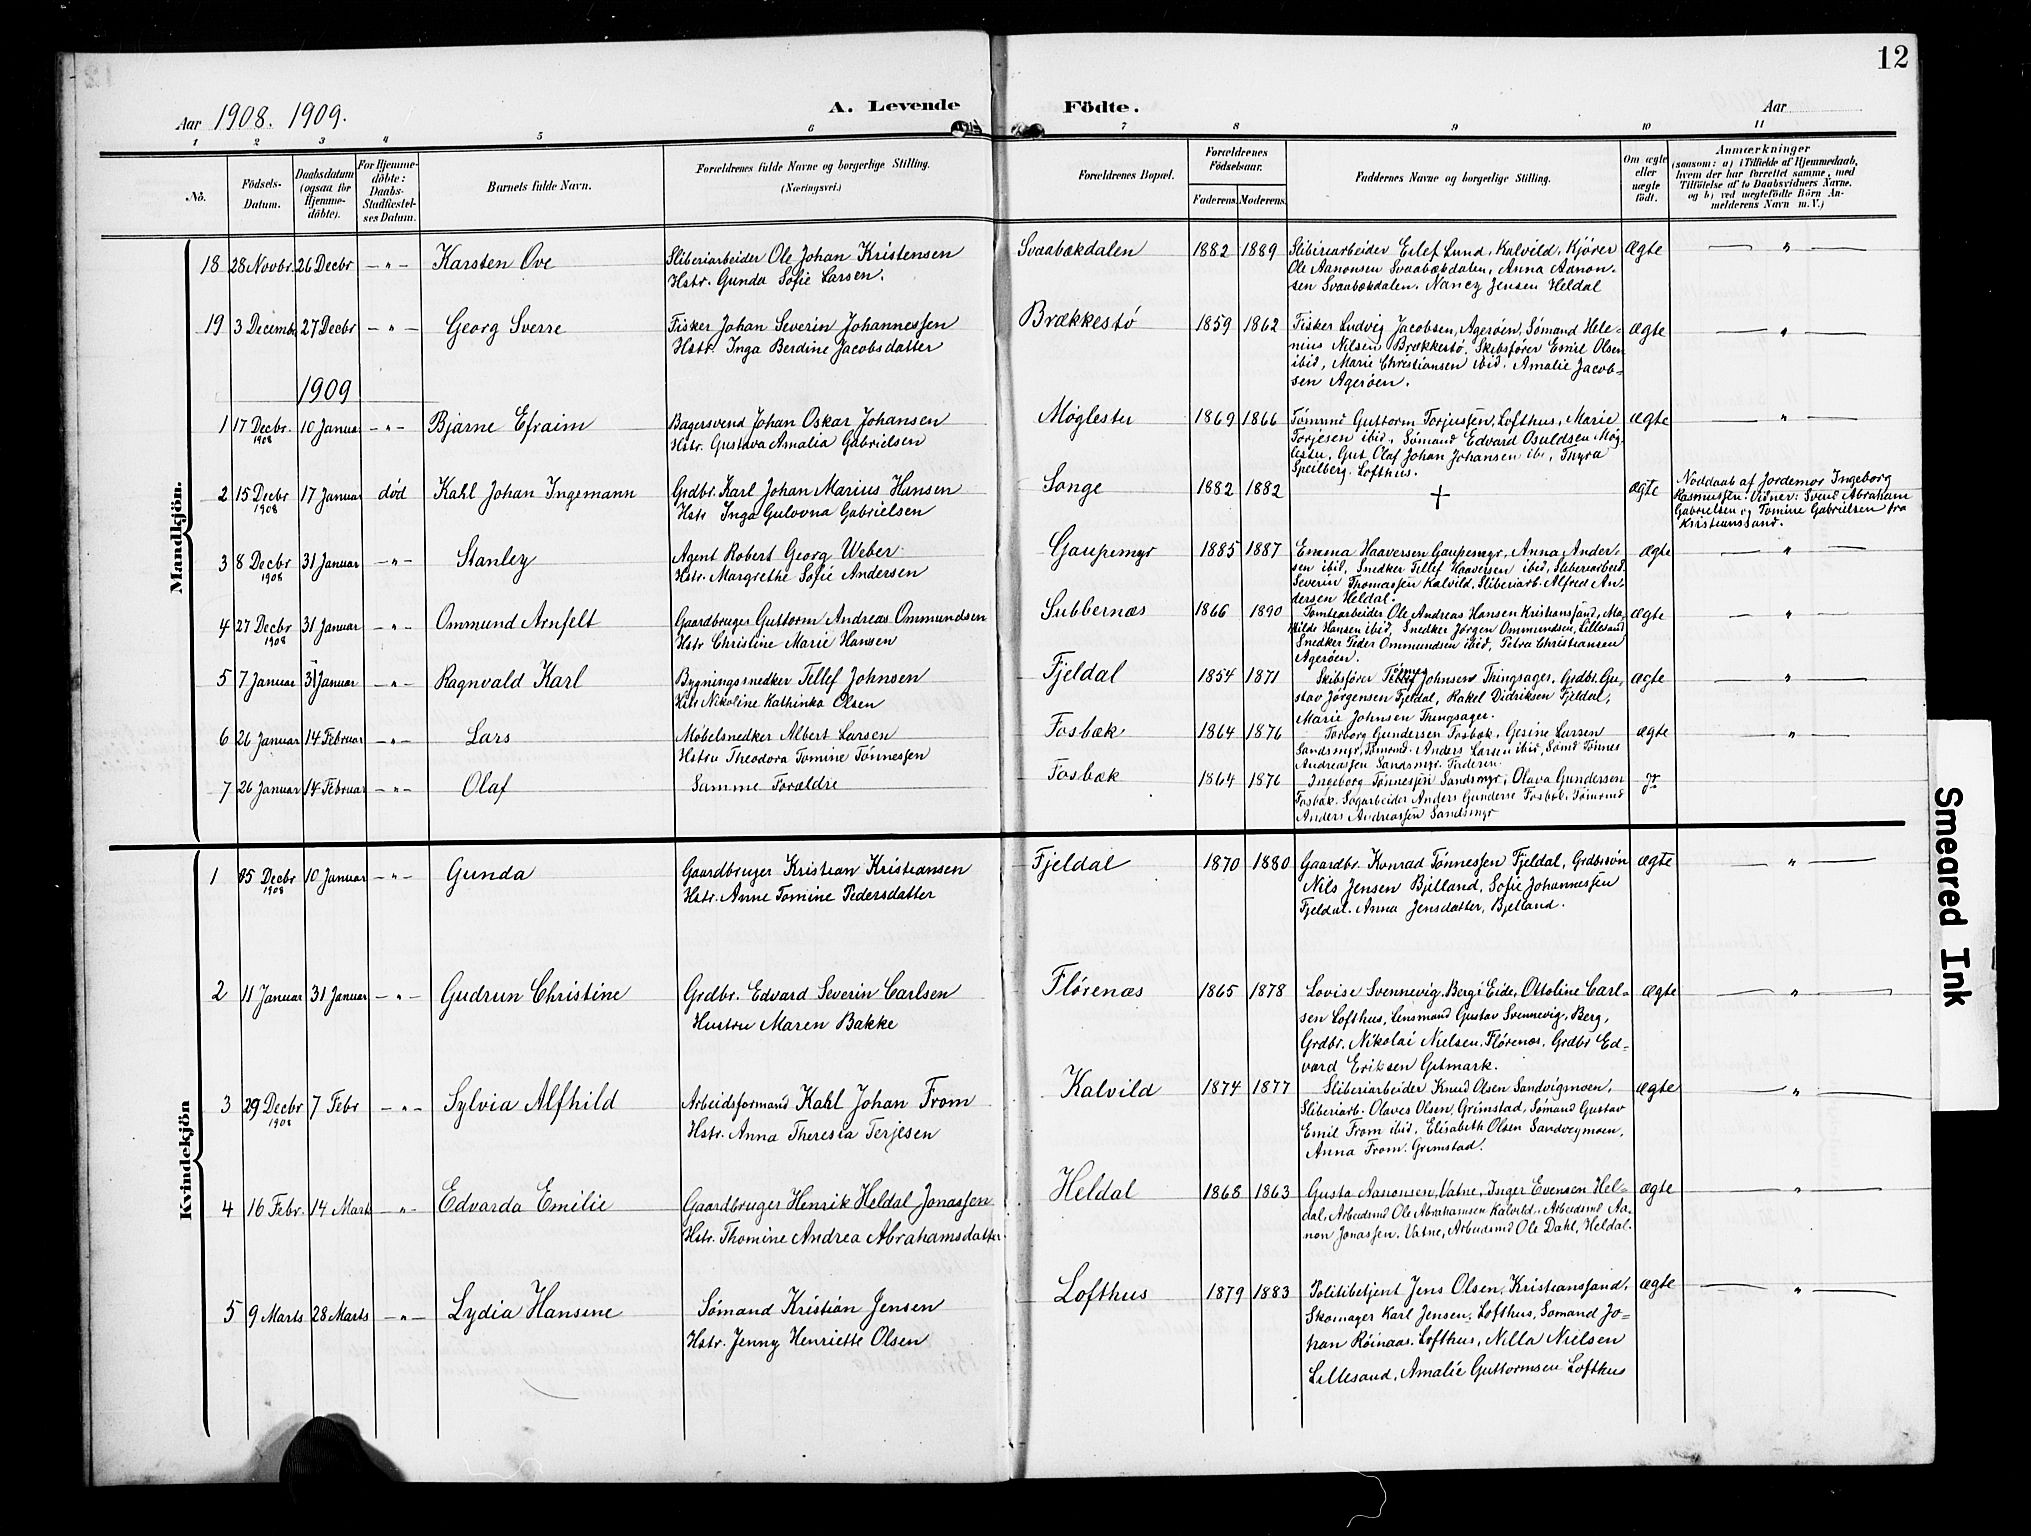 12
Aar 1908. 1909.
A. Levende Födte.
Aar
1 2 3 4 5 6 7 8 9 10 11
No.
Födsels-
Datum.
Daabsdatum
(ogsaa for
Hjemme-
döbte).
For Hjemme-
döbte:
Daabs-
Stadfæstel-
ses Datum.
Barnets fulde Navn.
Forældrenes fulde Navne og borgerlige Stilling.
(Næringsvei.)
Forældrenes Bopæl.
Forældrenes
Födselsaar.
Faderens. Moderens.
Faddernes Navne og borgerlige Stilling.
Om ægte
eller
uægte
födt.
Anmærkninger
(saasom: a) i Tilfælde af Hjemmedaab,
hvem der har forrettet samme, med
Tilföielse af to Daabsvidners Navne,
og b) ved uægtefödte Börn An-
melderens Navn m. V.)
Mandkjön.
18 28 Novbr. 26 Decbr — „ — Karsten Ove
Sliberiarbeider Ole Johan Kristensen
Hstr. Gunda Sofie Larsen.
Svaabækdalen 1882 1889
Sliberiarbeider Eilef Lund, Kalvild, Kjører
Ole Aanonsen Svaabækdalen, Anna Aanon-
sen Svaabækdalen. Nancy Jensen Heldal
Ægte — „ —
19 3 Decembr 27 Decbr — „ — Georg Sverre
Fisker Johan Severin Johannessen
Hstr. Inga Berdine Jacobsdatter
Brækkestø 1859 1862
Fisker Ludvig Jacobsen, Agerøen, Sømand Hele-
nius Nilsen Brækkestø, Skibsfører Emil Olsen
ibid, Marie Christiansen ibid. Amalie Jacob-
sen Agerøen.
ægte — „ —
1909
1 17 Decbr. 1908 10 Januar — „ — Bjarne Efraim
Bagersvend Johan Oskar Johansen
Hstr. Gustava Amalia Gabrielsen
Møglestu 1869 1866
Tømmd Guttorm Torjussen, Lofthus, Marie
Torjesen ibid, Sømand Edvard Osuldsen Møg
lestu, Gut Olaf Johan Johansen ibi, Thyra
Speilberg. Lofthus.
ægte — „ —
2 15 Decbr 1908 17 Januar død Kahl Johan Ingemann
Grdbr. Karl Johan Marius Hansen
Hstr Inga Gulovna Gabrielsen
Songe 1882 1882 + ægte
Nøddaab af Jordemor Ingeborg
Rasmussen. Vidner: Svend Abraham
Gabrielsen og Tomine Gabrielsen fra
Kristianssand.
3 8 Decbr 1908 31 Januar — „ — Stanley
Agent Robert Georg Weber
Hstr. Margrethe Sofie Andersen
Gaupemyr 1885 1887
Emma Haaversen Gaupemyr, Anna Ander-
sen ibid, Snedker Tellef Haaversen ibid, Sliberiarbeid
Severin Thomassen Kalvild, Sliberiarb. Alfred An-
dersen Heldal.
ægte — „ —
4 27 Decbr 1908 31 Januar — „ — Ommund Arnfelt
Gaardbruger Guttorm Andreas Ommundsen
Hstr Christine Marie Hansen
Subbernæs 1866 1890
Tomtearbeider Ole Andreas Hansen Kristianssand, Ma-
thilde Hansen ibid, Snedker Jørgen Ommundsen, Lillesand
Snedker Peder Ommundsen ibid, Petra Christiansen
Agerøen.
ægte — „ —
5 7 Januar 31 Januar — „ — Ragnvald Karl
Bygningssnedker Tellef Johnsen
Hstr Nikoline Kathinka Olsen
Fjeldal 1854 1871
Skibsfører Johnsen Thingsager, Grdbr. Gu-
stav Jörgensen Fjeldal, Rakel Didriksen Fjeldal,
Marie Johnsen Thingsager.
ægte — „ —
6 26 Januar 14 Februar — „ — Lars
Møbelsnedker Albert Larsen
Hstru Theodora Tomine Tønnessen
Fosbæk 1864 1876
Torborg Gundersen Fosbæk, Gesine Larsen
Sandsmyr, Tømmd. Anders Larsen ibid, Sømd Tønnes
Andreassen Sandsmyr. Faderen.
ægte — „ —
7 26 Januar 14 Februar — „ — Olaf
Samme Forældre
Fosbæk 1864 1876
Ingeborg Tønnessen Sandsmyr, Olava Gundersen
Fosbæk. Sagarbeider Anders Gunderse Fosbæk. Tømmd
Anders Andreassen Sandsmyr
Kvindekjön
1 25 Decbr 1908 10 Januar — „ — Gunda
Gaardbruger Kristian Kristiansen
Hstr. Anne Tomine Pedersdatter
Fjeldal 1870 1880
Gaardbr. Konrad Tønnessen Fjeldal, Grdbrsøn
Nils Jensen Bjelland, Sofie Johannessen
Fjeldal. Anna Jensdatter, Bjelland.
ægte — „ —
2 11 Januar 31 Januar — „ — Gudrun Christine
Grdbr. Edvard Severin Carlsen
Hustru Maren Bakke
Flørenæs 1865 1878
Lovise Svennevig, Berg i Eide, Ottoline Carl-
sen Lofthus, Lensmand Gustav Svennevig, Berg,
Grdbr. Nikolai Nielsen, Flørenæs, Grdbr Ed-
vard Eriksen Gitmark.
ægte — „ —
3 29 Decbr 1908 7 Febr — „ — Sylvia Alfhild
Arbeidsformand Kahl Johan From
Hstr. Anna Theresia Terjesen
Kalvild 1874 1877
Sliberiarbeider Knud Olsen Sandvigmoen,
Sliberiarb. Olaves Olsen, Grimstad, Sømand Gustav
Emil From ibid, Elisabeth Olsen Sandvigmoen,
Anna From. Grimstad.
ægte — „ —
4 16 Febr. 14 Mart — „ — Edvarda Emilie
Gaardbruger Henrik Heldal Jonassen
Hstr. Thomine Andrea Abrahamsdatter
Heldal 1868 1863
Gusta Aanonsen, Vatne, Inger Evensen Hel-
dal, Arbeidsmd Ole Abrahamsen Kalvild, Arbeidsmd Aa-
non Jonassen. Vatne, Arbeidsmd Ole Dahl, Heldal.
ægte — „ —
5 9 Marts 28 Marts — „ — Lydia Hansine
Sømand Kristian Jensen
Hstr. Jenny Henriette Olsen
Lofthus 1879 1883
Politibetjent Jens Olsen, Kristianssand,
Skomager Karl Jensen, Lofthus, Sømand Jo-
han Röinaas. Lofthus, Nilla Nielsen
Lillesand, Amalie Guttormsen Lofthus
ægte — „ —
Smeared Ink